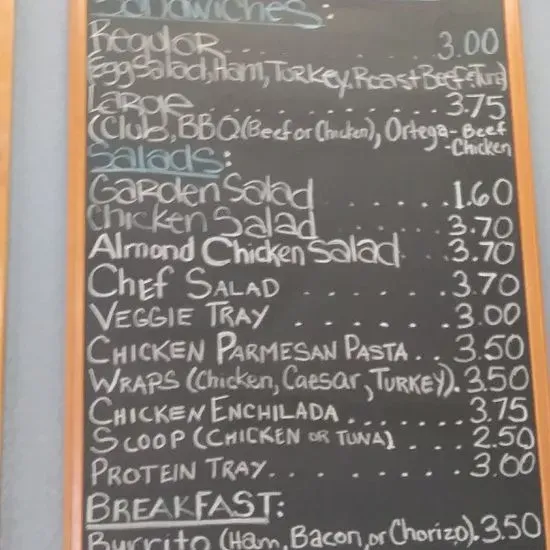 Sandwiches:
Regular........3.00
(Egg Salad, Ham, Turkey, Roast Beef, Tuna)
Large..........3.75
(Club, BBQ (Beef or Chicken), Ortega-Beef
-Chicken
Salads:
Garden Salad......1.60
Chicken Salad......3.70
Almond Chicken Salad...3.70
Chef Salad......3.70
Veggie Tray......3.00
Chicken Parmesan Pasta..3.50
Wraps (Chicken, Caesar, Turkey).3.50
Chicken Enchilada......3.75
Scoop (Chicken or Tuna)...2.50
Protein Tray......3.00
Breakfast:
Burrito (Ham, Bacon, or Chorizo).3.50